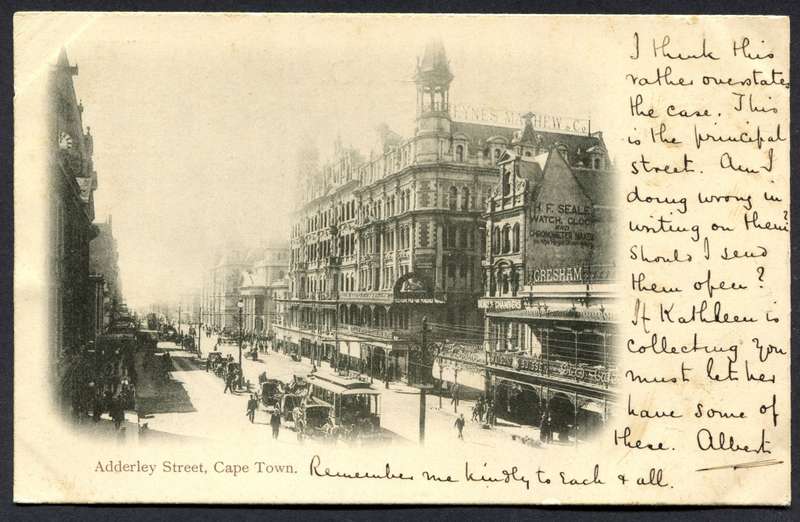 HEYNES MATHEW & Co.
H. F. SEALE
WATCH, CLOCK
AND
CHRONOMETER MAKER
GRESHAM
CHAMBERS
I think this
rather overstates
the case. This
is the principal
street. Am I
doing wrong in
writing on them?
Should I send
them open?
If Kathleen is
collecting you
must let her
have some of
these. Albert
Adderley Street, Cape Town.
Remember me kindly to Each & all.